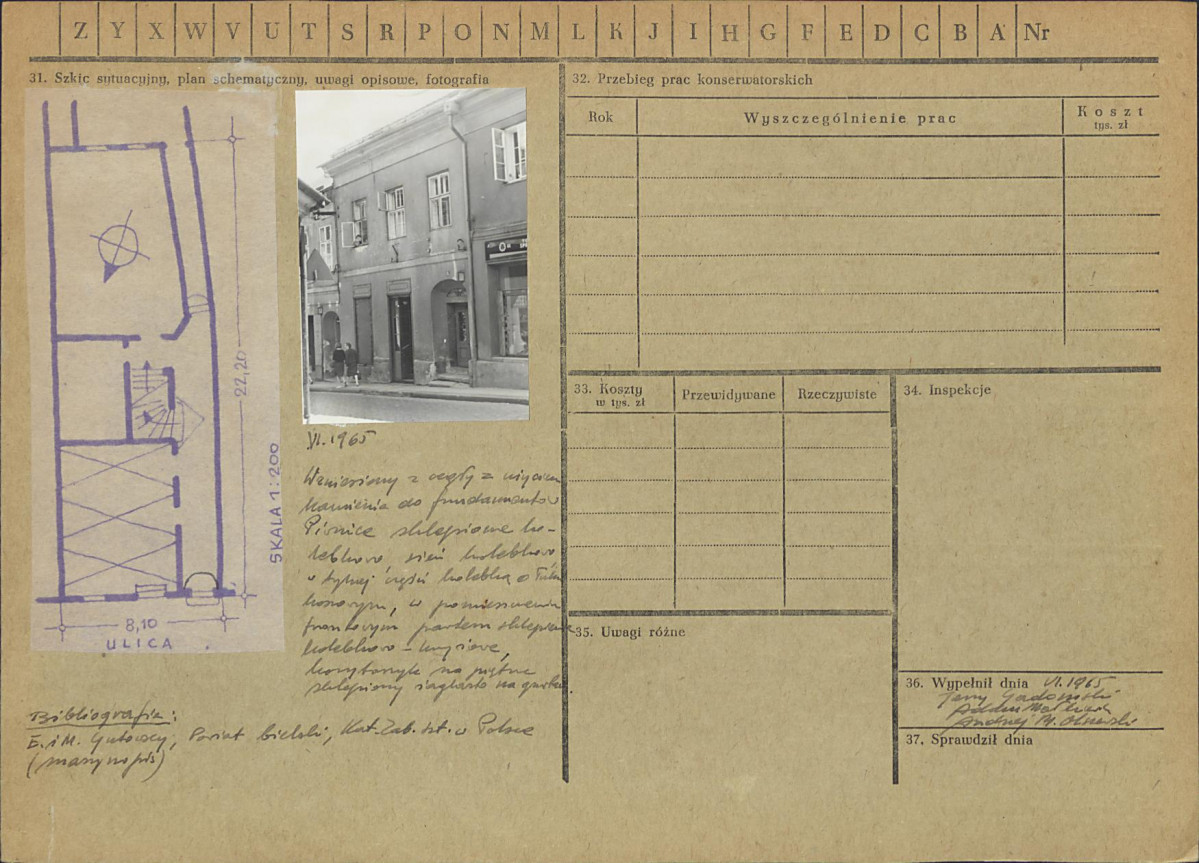 Z Y X W V U T S R P O N M L K J I H G F E D C B A Nr
31. Szkic sytuacyjny, plan schematyczny, uwagi opisowe, fotografia
22,20
SKALA 1:200
8,10
ULICA
VI.1965
Wzniesiony z cegły z użyciem
kamienia do fundamentów
Piwnice sklepione ko-
lebkowo sień kolebkowo
w tylnej części kolebką o
w pomieszczeniu
frontowym parteru sklepienie
kolebkowo - krzyżowe,
korytarzyk na piętrze
sklepiony żaglasto na gurtach.
Bibliografia:
E. i M. Gutowscy, Powiat bielski, Kat. Zab. Szt. w Polsce
(maszynopis)
32. Przebieg prac konserwatorskich
Rok
Wyszczególnienie prac
Koszt
tys. zł
33. Koszty
w tys. zł
Przewidywane
Rzeczywiste
34. Inspekcje
35. Uwagi różne
36. Wypełnił dnia VI.1965
Jerzy Gadomski
Andrzej M. Olszewski
37. Sprawdził dnia